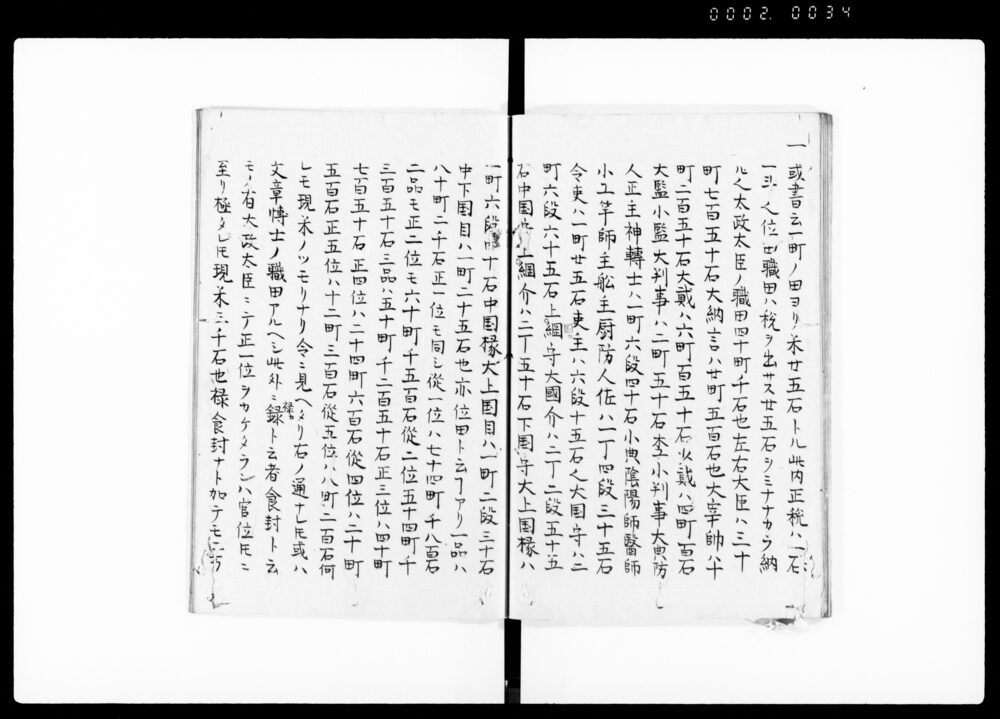 0002.0034
一 或書云一町ノ田ヨリ米廿五石トル此内正税ハ一石
一斗 位田職田ハ税ヲ出サス廿五石シミナナカラ納
ル 太政大臣ノ職田四十町千石也左右大臣ハ三十
町七百五十石大納言ハ廿町五百石也大宰帥ハ十
町二百五十石大貳ハ六町百五十石少貳ハ四町百石
大監小監大判事ハ二町五十石 小判事大典防
人正主神轉士ハ一町六段四十石小典陰陽師醫師
小工竿師主舩主厨防人佐ハ一丁四段三十五石
令吏ハ一町廿五石吏主ハ六段十五石 大国守ハ二
町六段六十五石上國守大國介ハ二丁二段五十五
石中国守上國介ハ二丁五十石下国守大上国椽ハ
一町六段四十石中国椽大上国目ハ一町二段三十石
中下国目ハ一町二十五石也亦位田ト云ヿアリ一品ハ
八十町二千石正一位モ同シ從一位ハ七十四町千八百石
二品モ正二位モ六十町千五百石從二位五十四町千
三百五十石三品ハ五十町千二百五十石正三位ハ四十町
七百五十石正四位ハ二十四町六百石從四位ハ二十町
五百石正五位ハ十二町三百石從五位ハ八町二百石何
レモ現米ノツモリナリ令ニ見ヘタリ右ノ通ナレ𪜈或ハ
文章博士ノ職田アルヘシ此外ニ禄ト云者食封ト云
モノ有大政大臣ニテ正一位ヲカケタランハ官位𪜈ニ
至リ極タレ𪜈現米三千石也禄食封ナト加テモ